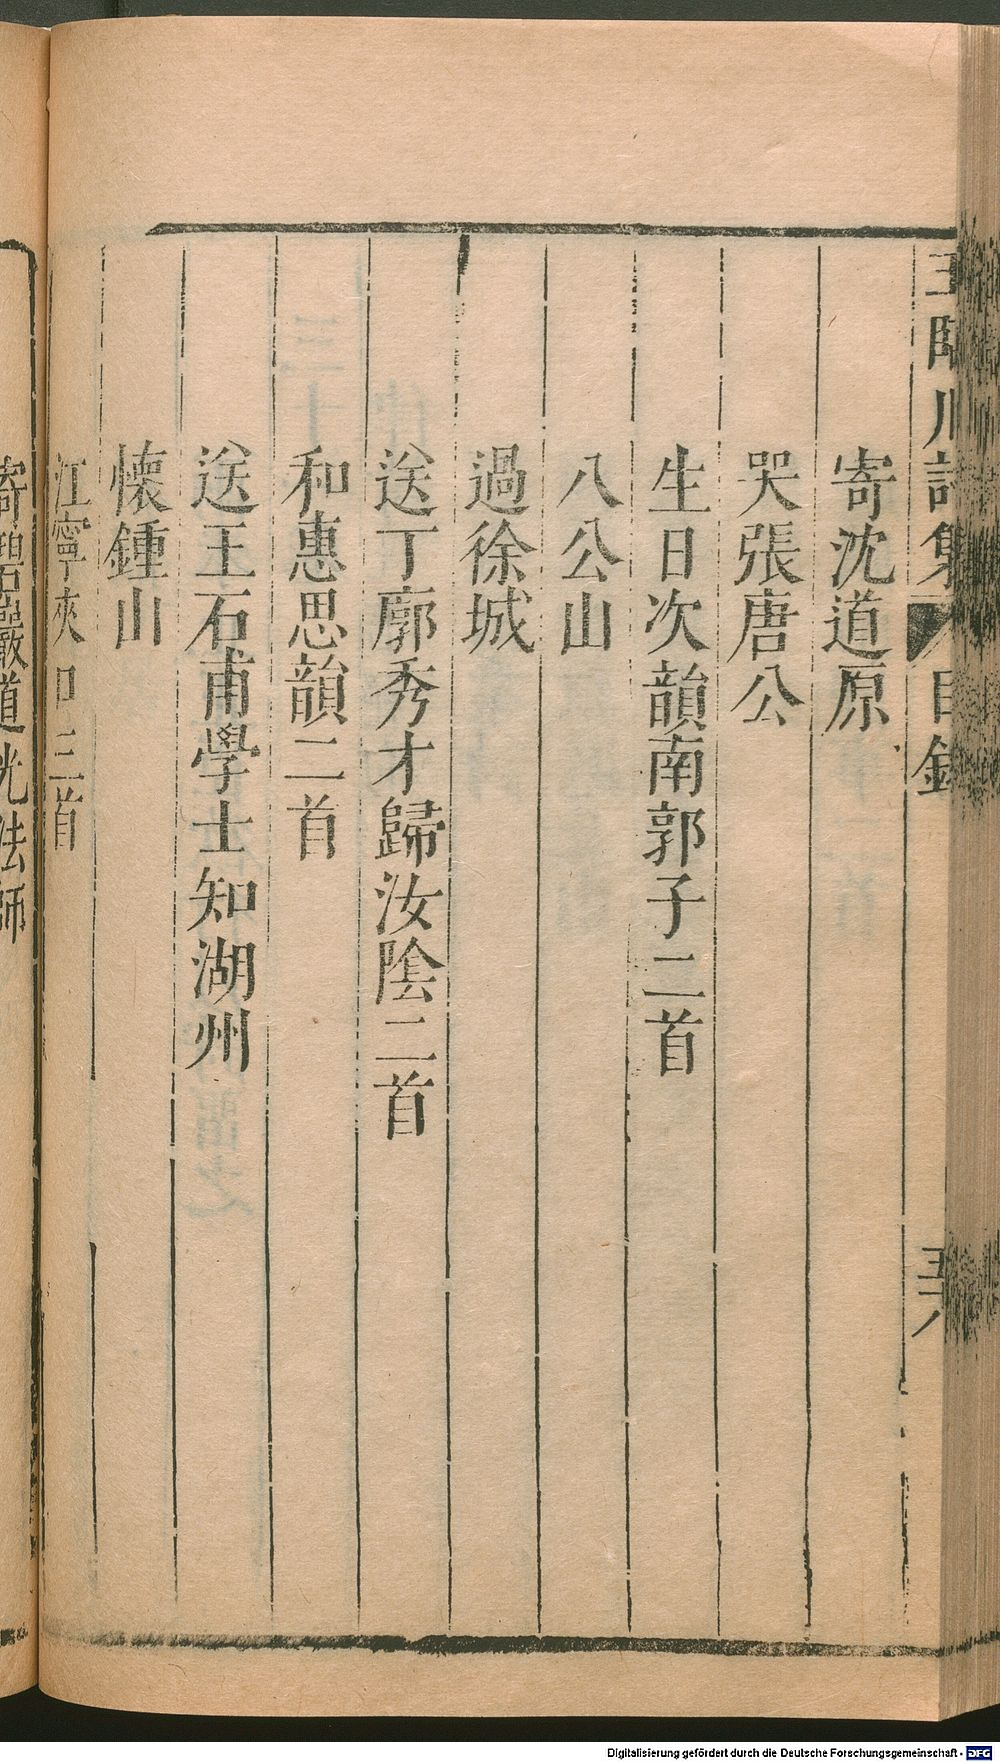 王臨川詩集 目錄 五八
寄沈道原
哭張唐公
生日次韻南郭子二首
八公山
過徐城
送丁廓秀才歸汝陰二首
和惠思韻二首
送王石甫學士知湖州
懷鍾山
江寧夾口三首
寄碧巖道光法師
Digitalisierung gefördert durch die Deutsche Forschungsgemeinschaft - DFG